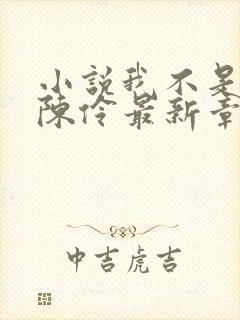 小說我不是
陳伶最新章
中吉虎吉